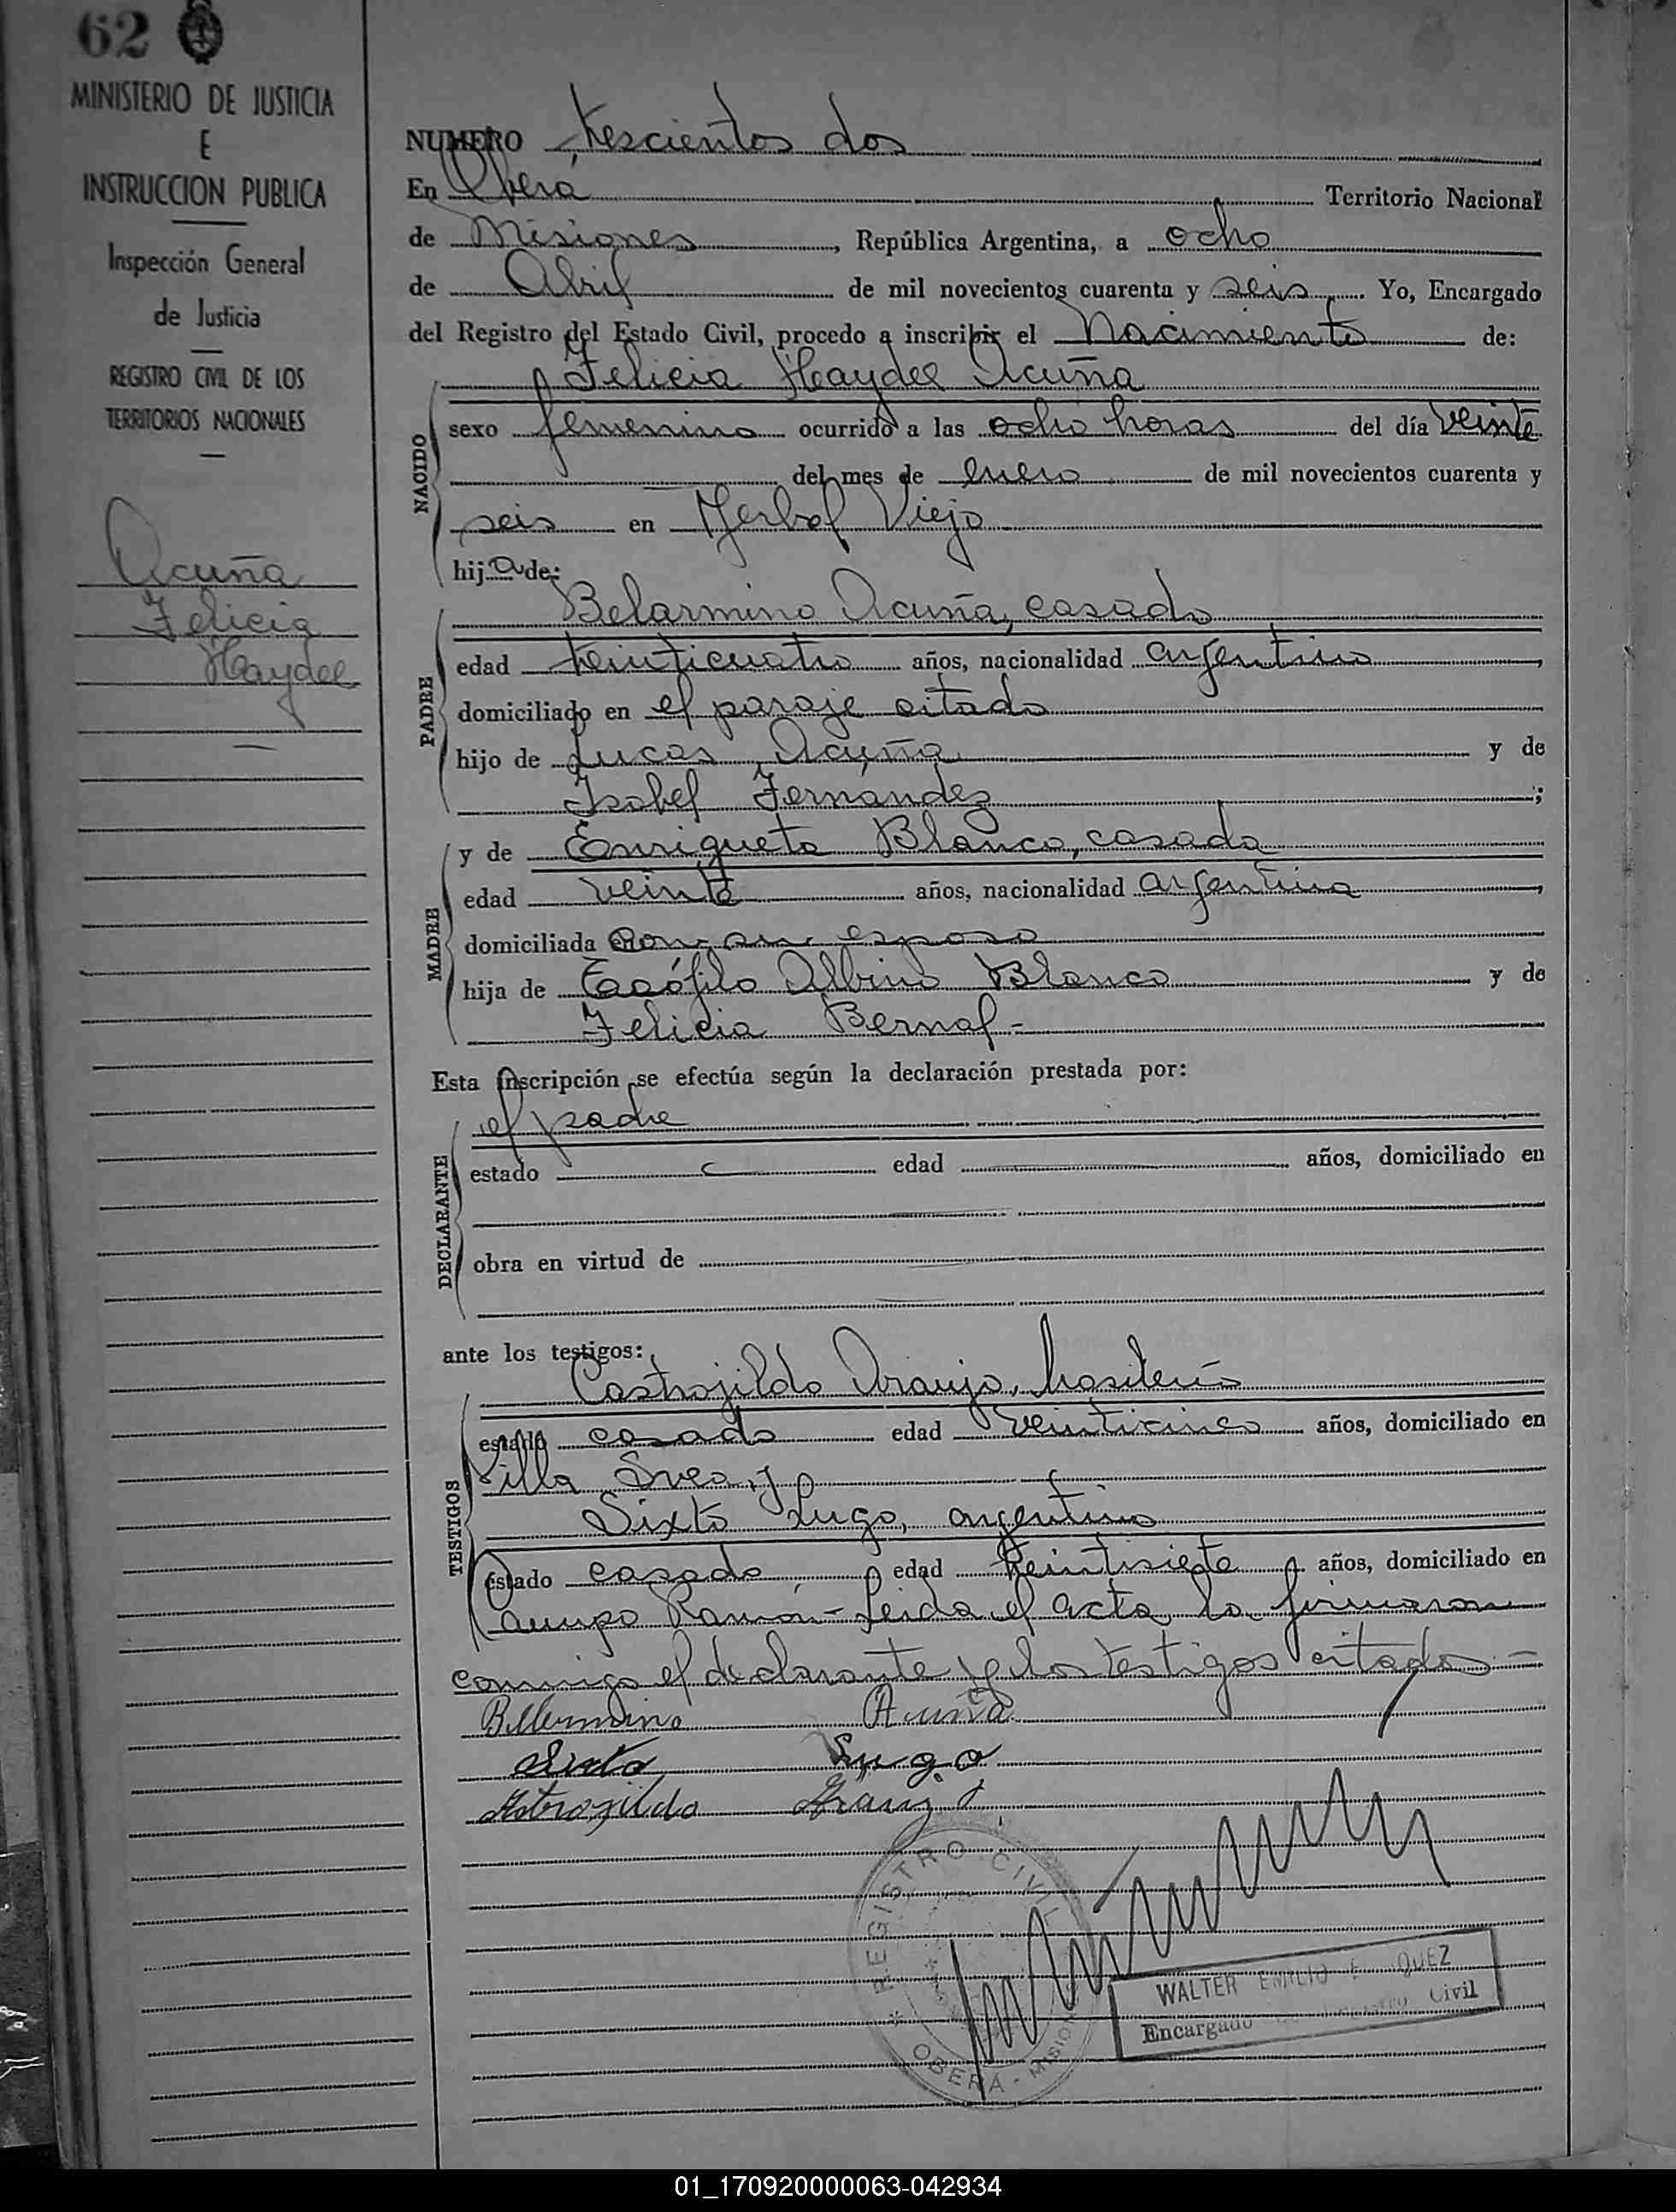 62
MINISTERIO DE JUSTICIA
E
INSTRUCCION PUBLICA
Inspección General
de Justicia
REGISTRO CIVIL DE LOS
TERRITORIOS NACIONALES
Acuña
Felicia
Haydee
NUMERO trescientos dos
En Oberá Territorio Nacional
de Misiones, República Argentina, a ocho
de Abril de mil novecientos cuarenta y seis. Yo, Encargado
del Registro del Estado Civil, procedo a inscribir el Nacimiento de:
Felicia Haydee Acuña
NACIDO
sexo femenino ocurrido a las ocho horas del día veinte
del mes de enero de mil novecientos cuarenta y
seis en Yerbal Viejo
hija de:
PADRE
Belarmino Acuña, casado
edad treinticuatro años, nacionalidad argentino
domiciliado en el paraje citado
hijo de Lucas Acuña y de
Isabel Fernandez;
MADRE
y de Enriqueta Blanco, casada
edad veinte años, nacionalidad argentina
domiciliada con su esposo
hija de Teófilo Albino Blanco y de
Felicia Bernal-
Esta inscripción se efectúa según la declaración prestada por:
DECLARANTE
el padre
estado edad años, domiciliado en
obra en virtud de
ante los testigos:
TESTIGOS
Castrojildo Araujo, brasileño
estado casado edad veinticinco años, domiciliado en
Villa Svea, y
Sixto Lugo, argentino
estado casado edad treintisiete años, domiciliado en
Campo Ramón- Leida el acta, la firmaron
conmigo el declarante y los testigos citados-
Acuña
Sixto Lugo
REGISTRO CIVIL
OBERA - MISIONES
WALTER EMILIO
Encargado Civil
01_170920000063-042934